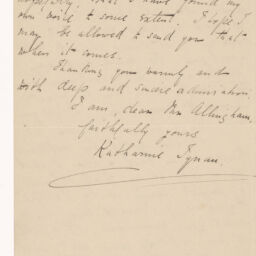 that I have found my
own voice to some extent. I hope I
may be allowed to send you that
when it comes.
Thanking you warmly and
with deep and sincere admiration,
I am, dear Mr Allingham,
faithfully yours
Katharine Tynan.